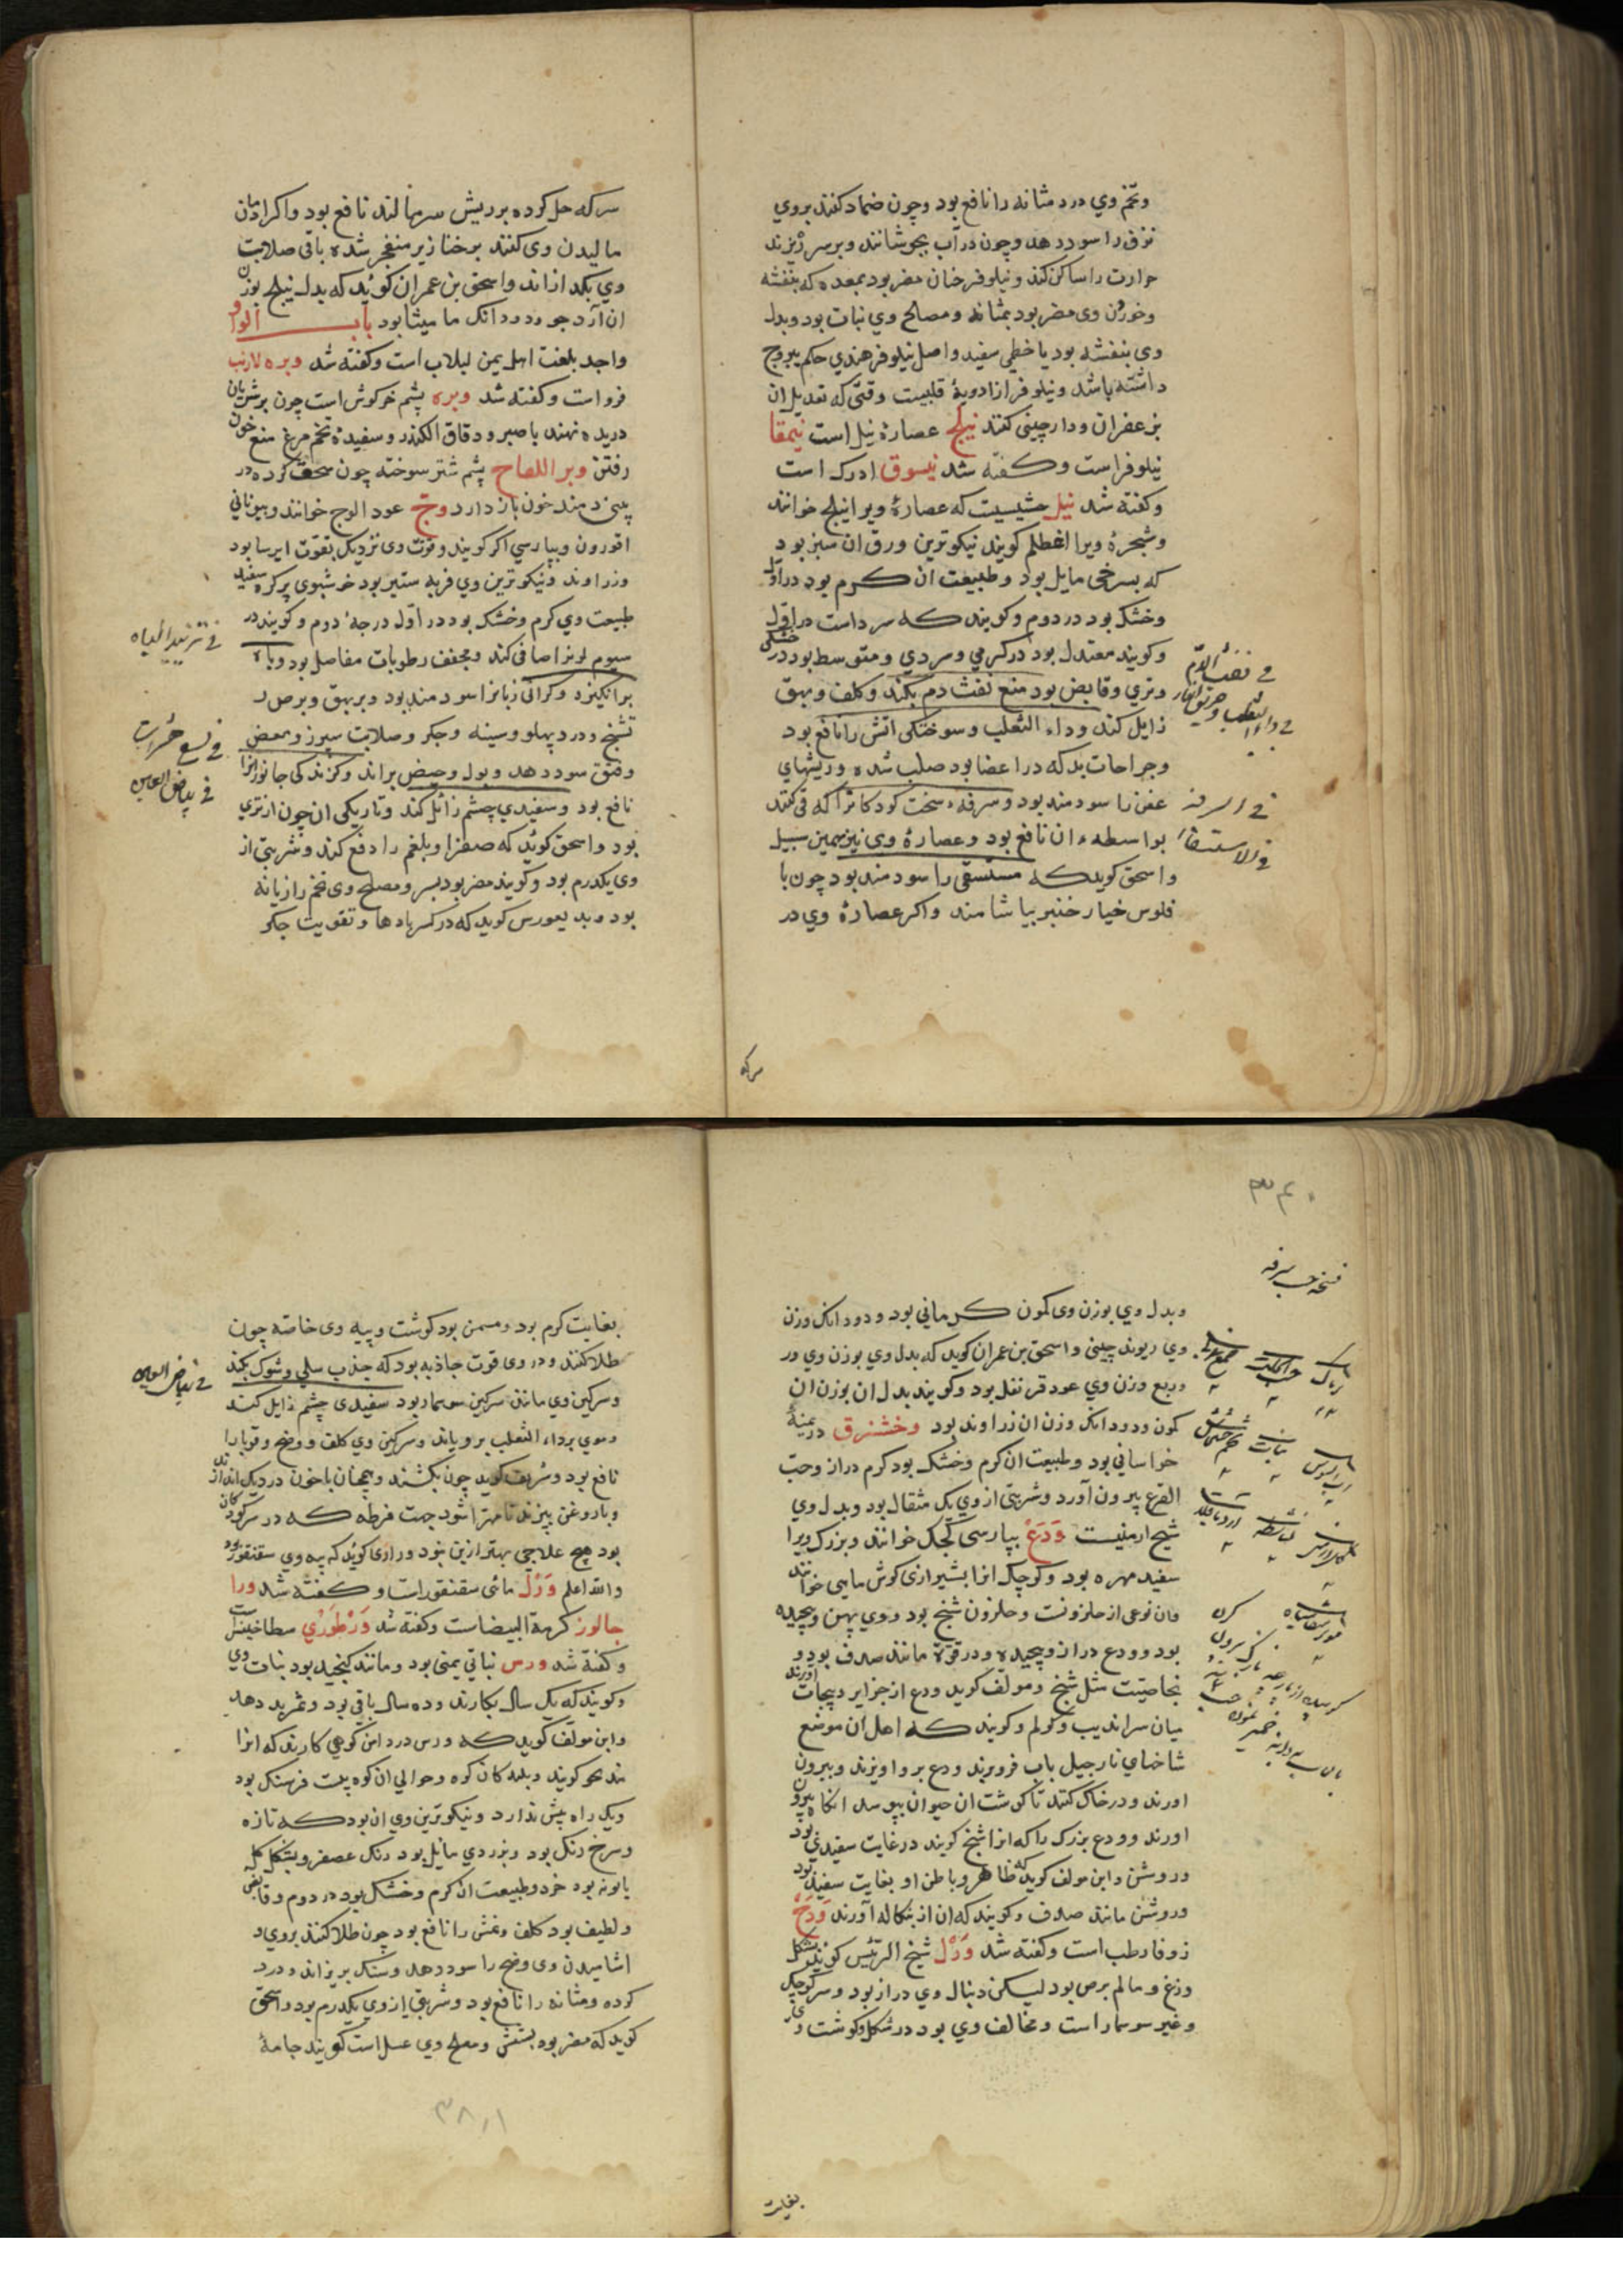 وتخم وي درد مثانه را نافع بود وچون ضماد کنند بروي
نزف را سود دهد وچون در آب بجوشانند وبر سر ریزند
حرارت را ساکن کند ونیلوفر خان مضر بود بمعده که بنفشه
وخوردن وی مضر بود بمثانه ومصلح وي نبات بود وبدل
وی بنفشه بود یا خطمي سفید واصل نیلوفر هندي حکم یبروج
داشته باشد ونیلوفر از ادویهٔ قلبیست وقتی که تعدیل ان
بزعفران ودارچینی کنند نیلج عصارهٔ نیل است نیمقا
نیلوفر است وکفته شد نیسوق ادرک است
وکفته شد نیل حشیشیست که عصارهٔ ویرا نیلج خوانند
وشجرهٔ ویرا اغطلم کویند نیکوترین ورق ان سبز بود
که بسرخی مایل بود وطبیعت ان کرم بود در اول
وخشک بود در دوم وکویند که سرد است در اول
وکویند معتدل بود در کرمي وسردي ومتوسط بود در خشکی
وتري وقابض بود منع نفث دم بکند وکلف وبهق
زایل کند وداء الثعلب وسوختکی اتش را نافع بود
وجراحات بد که در اعضا بود صلب شده وریشهاي
عفن را سودمند بود وسرفهء سخت کودکانرا که قی کنند
بواسطهء ان نافع بود وعصارهٔ وی نیز همین سبیل
واسحق کوید که مستسقی را سودمند بود چون با
فلوس خیار خنبر بیاشامند واکر عصارهٔ وي در
في نفث الدم
في داء الثعلب وحرق النار
في السرفه
في الاستسقاء
سرکه
سرکه حل کوده بر ریش سر بمالند نافع بود واکر ادمان
مالیدن وی کنند بر خنازیر منفجر شده باقی صلابت
وي بکدازاند واسحق بن عمران کوئید که بدل نیلج بوزن
ان آرد جو ودو دانک مامیثا بود باب الواو
واجد بلغت اهل یمن لبلاب است وکفته شد وبره لارنب
فرو است وکفته شد وبره پشم خرکوش است چون برشریان
دریده نهند با صبر ودقاق الکندر وسفیدهٔ تخم مرغ منع خون
رفتن وبر اللعاح پشم شتر سوخته چون سحق کرده در
بینی دمند خون باز دارد وج عود الوج خوانند وبیوناني
اقورون وبپارسي اکر کویند وقوت وی نزدیک بقوت ایرسا بود
وزراوند ونیکوترین وي فربه ستبر بود خوشبوی پرکره سفید
طبیعت وي کرم وخشک بود در اول درجهٔ دوم وکویند در
سیوم لونرا صافی کند ومجفف رطوبات مفاصل بود وباه
برانکیزد وکرانی زبانرا سودمند بود وبر بهق وبرص
تشنج ودرد پهلو وسینه وجکر وصلابت سپرز ومغص
وفتق سود دهد وبول وحیض براند وکزندکی جانورانرا
نافع بود وسفیدي چشم زائل کند وتاریکی ان چون از تري
بود واسحق کوئید که صفرا وبلغم را دفع کند وشربتی از
وی یکدرم بود وکویند مضر بود بسر ومصلح وی تخم رازیانه
بود وبدیغورس کوید که در کسر بادها وتقویت جکر
في تزیید الباه
في لسع حشرات
في بیاض العین
۳۴۰
نسخه حب سرفه
وبدل وي بوزن وی کمون کرماني بود ودودانک وزن
وي ریوند چینی واسحق بن عمران کوید که بدل وي بوزن وي ور
وربع وزن وي عود قرنفل بود وکویند بدل ان بوزن ان
کمون ودودانک وزن ان زراوند بود وخشنزق درمنهٔ
خراساني بود وطبیعت ان کرم وخشک بود کرم دراز وحب
القرع بیرون آورد وشربتی از وي یک مثقال بود وبدل وي
شیح ارمنیست وَدَعْ بپارسی کجک خوانند وبزرک ویرا
سفید مهره بود وکوچک انرا بشیرازی کوش ماهی خوانند
وان نوعی از حلزونست وحلزون شنج بود ووي پهن وپیچیده
بود وودع دراز وپیچیده ودر قوة مانند صدف بود و
بخاصیت مثل شنج ومولف کوید ودع از جزایر دیبجات آورند
میان سراندیب وکولم وکویند که اهل ان موضع
شاخهاي نارجیل باب فروبرند ودع برو اویزند وبیرون
اورند ودر خاک کنند تا کوشت ان حیوان بپوسد انکاه بیرون
اورند وودع بزرک را که انرا شنج کویند در غایت سفیدی بود
وروشن واین مولف کوید که ظاهر وباطن او بغایت سفید بود
وروشن مانند صدف وکویند که ان از بنکاله آورند وَدَحْ
زوفا رطب است وکفته شد وَرَلْ شیخ الرئیس کوید بشکل
وزغ وسالم برص بود لیکن دنبال وي دراز بود وسر کوچک
وغیر سوسمار است ومخالف وي بود در شکل وکوشت وی
بغایت
بغایت کرم بود ومسمن بود کوشت وپیه وی خاصه چون
طلا کنند ودر وی قوت جاذبه بود که جذب سلی وشوک بکند
وسرکین وي مانند سرکین سوسمار بود سفیدی چشم زایل کند
وموي برداء الثعلب برویاند وسرکین وي کلف ووضح وقوبا را
نافع بود وشریف کوید چون بکشند وهمچنان باخون در دیک اندازند
وبا روغن بپزند تا مهرا شود جهت فرطه که در سر کودکان
بود هیچ علاجي بهتر ازین نبود ورازی کوئید که پیه وي سقنقور بود
والله اعلم وَرَل مائی سقنقور است وکفته شد ورا
جالوز کرمة البیضاست وکفته شد وَرْطُورْي سطاخینس است
وکفته شد ورس نباتي یمنی بود ومانند کنجید بود نبات وي
وکویند که یک سال بکارند وده سال باقی بود وثمر بد دهد
واین مولف کوید که ورس در دامن کوهي کارند که انرا
مدیحو کویند وبلد کان کوه وحوالي ان کوه بیست فرسنک بود
ویک راه بیش ندارد ونیکوترین وي ان بود که تازه
وسرخ رنک بود وبزردي مایل بود رنک عصفر وبشکل کل
بابونه بود خرد وطبیعت ان کرم وخشک بود در دوم وقابض
ولطیف بود کلف ونمش را نافع بود چون طلا کنند بروي و
اشامیدن وی وضح را سود دهد وسنک بریزاند ودرد
کرده ومثانه را نافع بود وشربتي از وي یکدرم بود واسحق
کوید که مضر بود بشش ومصلح وي عسل است کویند جامهٔ
في بیاض العین
۳۸۱